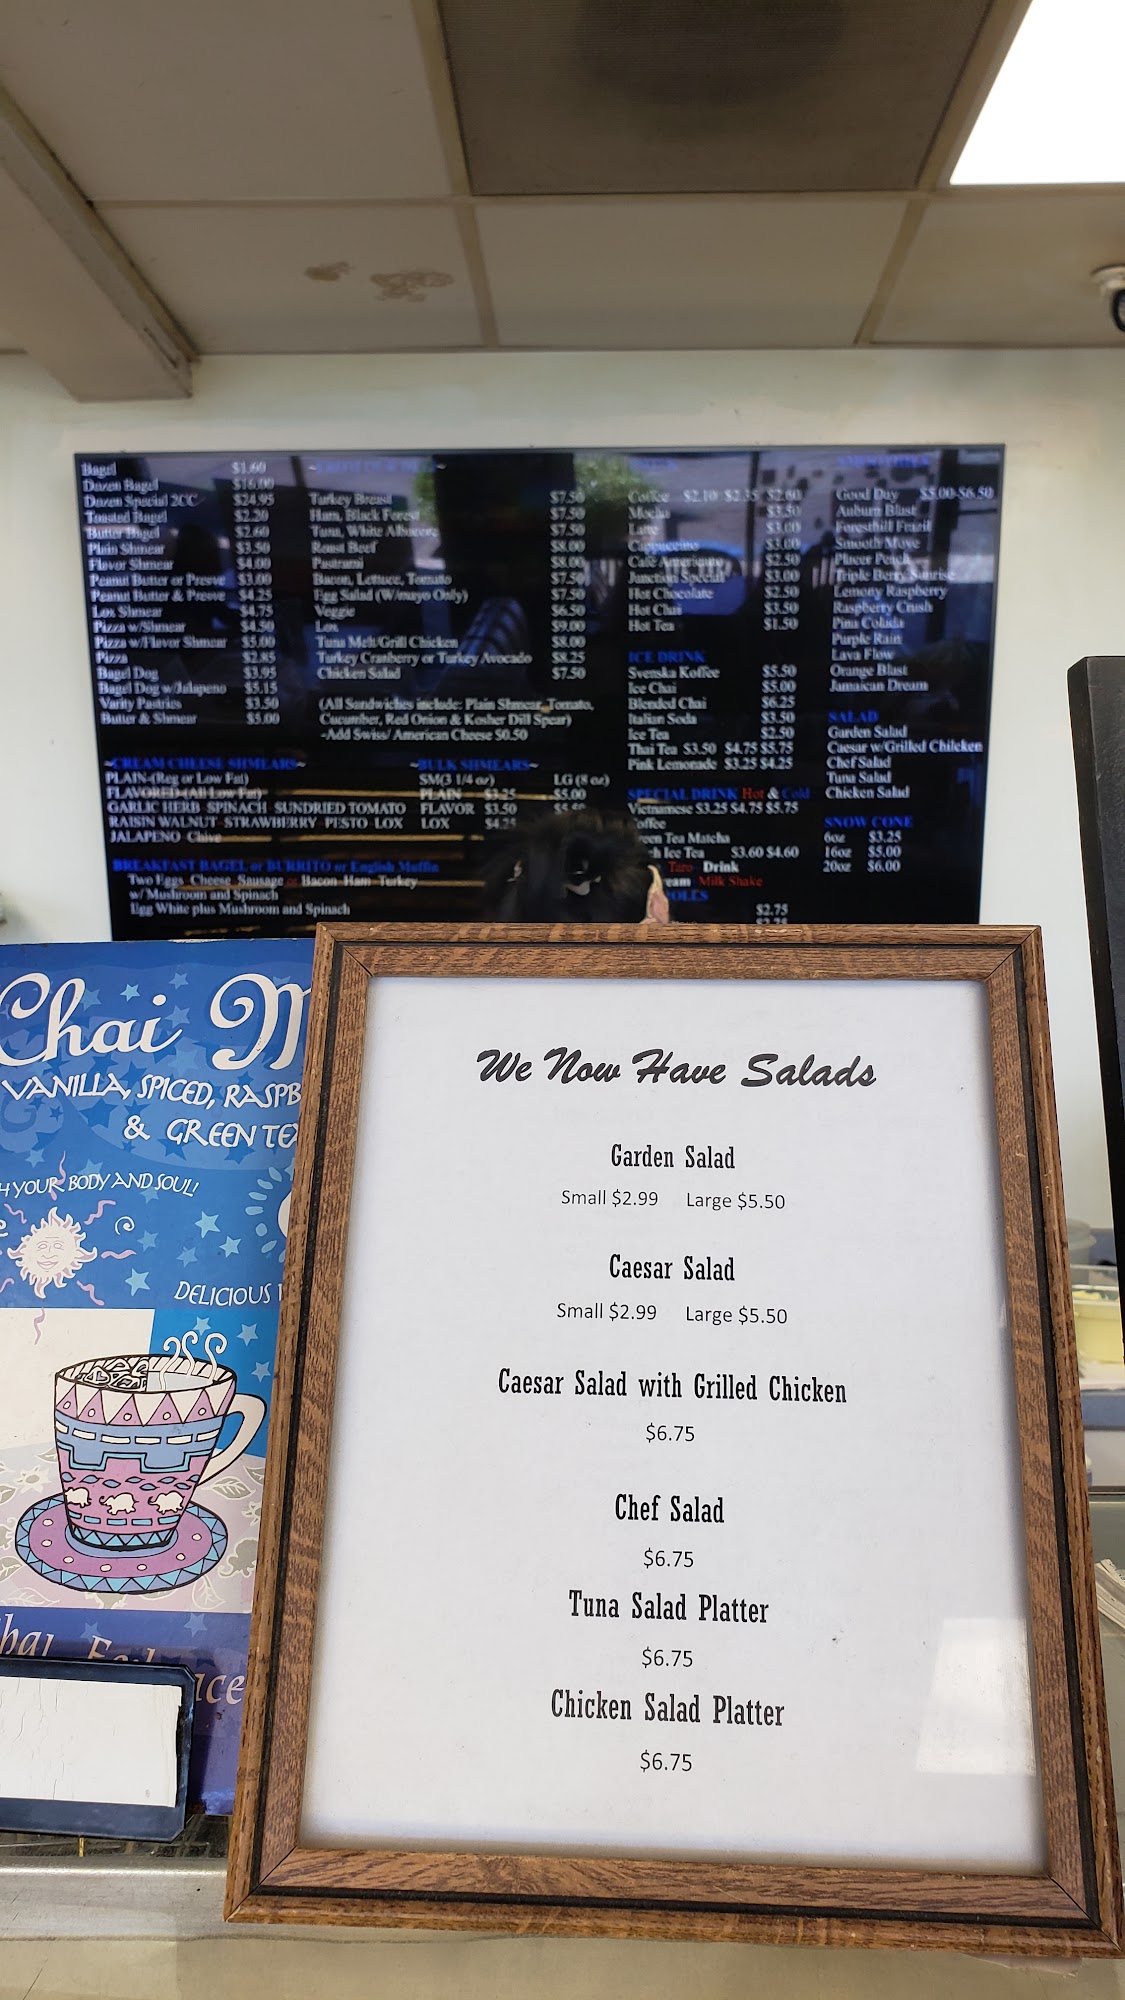 Bagel $1.60
Dozen Bagel $16.00
Dozen Special 2CC $24.95
Toasted Bagel $2.20
Butter Bagel $2.60
Plain Shmear $3.50
Flavor Shmear $4.00
Peanut Butter or Presve $3.00
Peanut Butter & Presve $4.25
Lox Shmear $4.75
Pizza w/Shmear $4.50
Pizza w/Flavor Shmear $5.00
Pizza $2.85
Bagel Dog $3.95
Bagel Dog w/Jalapeno $5.15
Varity Pastries $3.50
Butter & Shmear $5.00
~CREAM CHEESE SHMEARS~
PLAIN-(Reg or Low Fat)
FLAVORED-(All Low Fat)
GARLIC HERB SPINACH SUNDRIED TOMATO
RAISIN WALNUT STRAWBERRY PESTO LOX
JALAPENO Chive
~BULK SHMEARS~
SM(3 1/4 oz) LG (8 oz)
PLAIN $3.25 $5.00
FLAVOR $3.50
LOX $4.25
BREAKFAST BAGEL or BURRITO or English Muffin
Two Eggs Cheese Sausage or Bacon Ham Turkey
w/ Mushroom and Spinach
Egg White plus Mushroom and Spinach
Turkey Breast $7.50
Ham, Black Forest $7.50
Tuna, White Albacore $7.50
Roast Beef $8.00
Pastrami $8.00
Bacon, Lettuce, Tomato $7.50
Egg Salad (W/mayo Only) $7.50
Veggie $6.50
Lox $9.00
Tuna Melt/Grill Chicken $8.00
Turkey Cranberry or Turkey Avocado $8.25
Chicken Salad $7.50
(All Sandwiches include: Plain Shmear, Tomato,
Cucumber, Red Onion & Kosher Dill Spear)
-Add Swiss/ American Cheese $0.50
Coffee $2.10 $2.35 $2.60
Mocha $3.50
Latte $3.00
Cappuccino $3.00
Cafe Americano $2.50
Junction Special $3.00
Hot Chocolate $2.50
Hot Chai $3.50
Hot Tea $1.50
ICE DRINK
Svenska Koffee $5.50
Ice Chai $5.00
Blended Chai $6.25
Italian Soda $3.50
Ice Tea $2.50
Thai Tea $3.50 $4.75 $5.75
Pink Lemonade $3.25 $4.25
SPECIAL DRINK Hot & Cold
Vietnamese $3.25 $4.75 $5.75
Tea Matcha
Ice Tea $3.60 $4.60
Taro Drink
Milk Shake
$2.75
Good Day $5.00-$6.50
Auburn Blast
Foresthill Frazil
Smooth Move
Placer Peach
Triple Berry Sunrise
Lemony Raspberry
Raspberry Crush
Pina Colada
Purple Rain
Lava Flow
Orange Blast
Jamaican Dream
SALAD
Garden Salad
Caesar w/Grilled Chilcken
Chef Salad
Tuna Salad
Chicken Salad
SNOW CONE
6oz $3.25
16oz $5.00
20oz $6.00
Chai
VANILLA, SPICED, RASPB
& GREEN TEA
YOUR BODY AND SOUL!
DELICIOUS
We Now Have Salads
Garden Salad
Small $2.99 Large $5.50
Caesar Salad
Small $2.99 Large $5.50
Caesar Salad with Grilled Chicken
$6.75
Chef Salad
$6.75
Tuna Salad Platter
$6.75
Chicken Salad Platter
$6.75